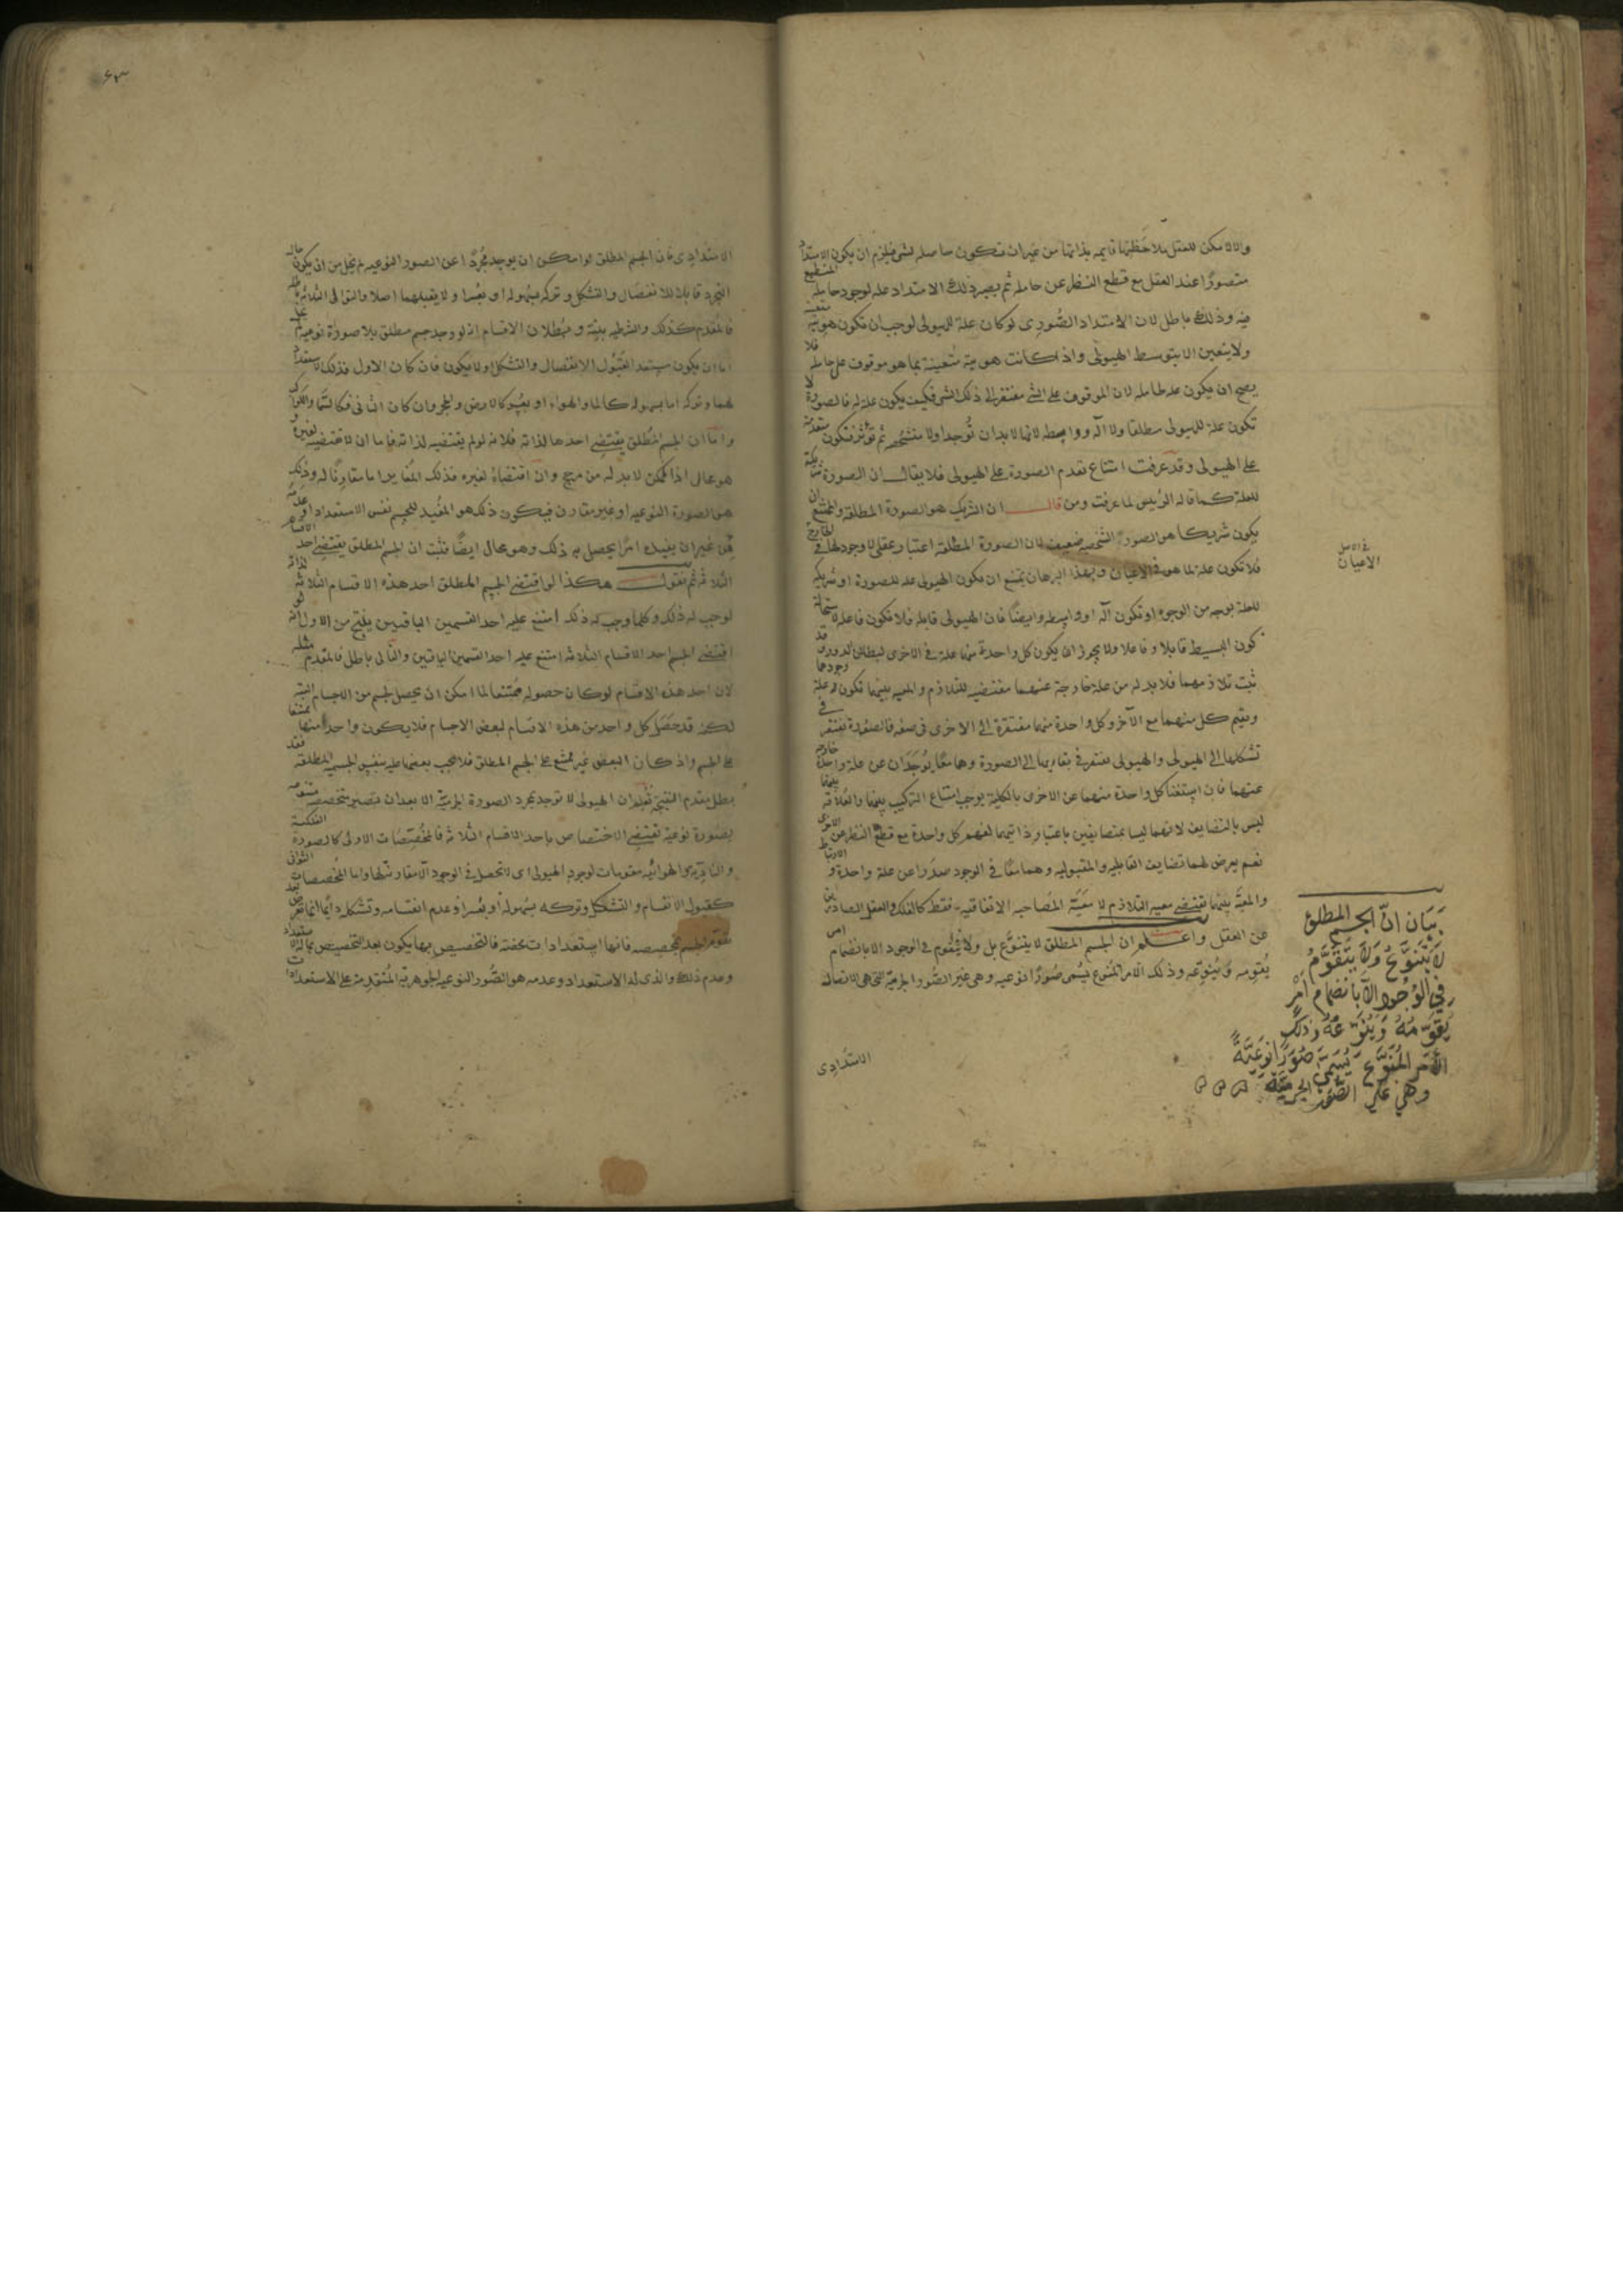 والا لامكن للعقل ملاحظتها قايمه بذاتها من غير ان تكون حاصله لشى فيلزم ان يكون الامتداد
متصورًا عند العقل مع قطع النظر عن حامله ثم يصير ذلك الامتداد عله لوجود حامله
فيه وذلك باطل لان الامتداد الصُّورى لو كان علة للهيولى لوجب ان تكون هويته
ولا يتعين الا بتوسط الهيولى واذا كانت هويته متعينة بما هو موقوف على حامله فلا
يصح ان يكون عله لحامله لان الموقوف على الشى مفتقر الى ذلك الشى فكيف يكون علة له فالصورة لا
تكون علة للهيولى مطلقا ولا آله وواسطه لانها لابد ان تُوجد اولا متشخصه ثم تؤثر فتكون متقدمة
على الهيولى وقد عرفت امتناع تقدم الصورة على الهيولى فلا يقال ان الصورة شريكة
للعلة كما قاله الرئيس لما عرفت ومن قال ان الشريك هو الصورة المطلقة والممتنع ان
يكون شريكا هو الصورة الشخصيه ضعيف لان الصورة المطلقة اعتبار عقلى لا وجود لها فى الخارج
فلا تكون علة لما هو فى الاعيان وبهذا البرهان يمتنع ان يكون الهيولى علة للصورة او شريكه
للعلة بوجه من الوجوه او تكون آله او واسطه وايضًا فان الهيولى قابله فلا تكون فاعله لاستحالة
كون البسيط قابلا وفاعلا ولا يجوز ان يكون كل واحدة منهما علة فى الاخرى لبطلان الدور وقد
ثبت تلازمهما فلابد له من علة خارجة عنهما مقتضيه للتلازم والمعيه بينهما تكون علة وجودهما
ويقيم كل منهما مع الآخر وكل واحدة منهما مفتقرة الى الاخرى فى صفة فالصورة تفتقر فى
تشكلها الى الهيولى والهيولى تفتقر فى بقايها الى الصورة وهما معًا يُوجَدَان عن علة واحدة خارجه
عنهما فان استغنا كل واحدة منهما عن الاخرى بالكلية يوجب امتناع التركيب بينهما والعلاقة بينهما
ليس بالتضايف لانهما ليسا بمتضايفين باعتبار ذاتيهما لفهم كل واحدة مع قطع النظر عن الاخرى
نعم يعرض لهما تضايف القابليه والمقبوليه وهما معًا فى الوجود صدَرا عن علة واحدة
والمعيَّة بينهما تقتضى معيه التلازم لا معيَّة المصاحبه الاتفاقيه فقط كالفلك والعقل الصادرين
عن العقل واعلم ان الجسم المطلق لا يتنوَّع بل ولا يتقوم فى الوجود الا بانضمام امر
يُقومه ويُنوِّعه وذلك الامر المُنوع يسُمى صُورًا نوعيه وهى غير الصُّور الجرميّة التى هى الاتصال
الامتدادى
فى الاصل
الاعيان
بَيَان انّ الجسم المطلق
لَا يَتَنَوَّعُ وَلَا يَتَقَوَّمُ
فِي الوُجُودِ الّا بانضمام امْرٍ
يُقَوِّمُهُ وَيُنَوِّعُهُ وَذلكَ
الأَمر المُنَوِّع يُسَمىَّ صُوَرًا نَوعَيَّةً
وهى غير الصُّور الجرميَّة
٦٣
الامتدادى فان الجسم المطلق لو امكن ان يوجد مجُرَّدًا عن الصور النوعيه لم يخل من ان يكون حاله
التجرد قابلا للانفصال والتشكل وتركه بسهوله او بعُسر او لا يقبلهما اصلا والتوالى الثلاثه باطله
فالمقدم كذلك والشرطيه بينة وبُطلان الاقسام اذ لو وجد جسم مطلق بلا صورة نوعيه
اما ان يكون مستعد القَبُول الانفصال والتشكل او لا يكون فان كان الاول فذلك الاستعداد
لهما وتركه اما بسهوله كالما والهواء او بعُسر كالارض والحجر وان كان الثانى فكالسما والكواكب
واما ان الجسم المطلق يقتضى احدها لذاته فلانه لو لم يقتضيه لذاته فاما ان لا يقتضيه لغيره
هو محال اذا الممكن لابد له من مرجح وان اقتضاه لغيره فذلك المُغاير اما مقارنًا له وذلك
هو الصورة النوعيه او غير مقارن فيكون ذلك هو المُفيد للجسم نفس الاستعداد او عدمه
من غير ان يفيده امرًا يحصل به ذلك وهو محال ايضًا فثبت ان الجسم المطلق يقتضى احد الاقسام
الثلاثه ثم نقول هكذا لو اقتضى الجسم المطلق احد هذه الاقسام الثلاثه لذاته
لوجب له ذلك وكلما وجب له ذلك امتنع عليه احد القسمين الباقيين ينتج من الاول انه لو
اقتضى الجسم احد الاقسام الثلاثه امتنع عليه احد القسمين الباقيين والتالى باطل فالمقدم مثله
لان احد هذه الاقسام لو كان حصوله ممتنعا لما امكن ان يحصل لجسم من الاجسام البتة
لكن قد حَصَل كل واحد من هذه الاقسام لبعض الاجسام فلا يكون واحد منها ممتنعا
على الجسم واذ كان البعض غير ممتنع على الجسم المطلق فلا يجب بعضها عليه بنفس الجسميه المطلقة فقد
بطل مقدم النتيجة فعُلِم ان الهيولى لا توجد بمجرد الصورة الجرميّة الا بعد ان تصير متخصصه
بصُورة نوعية تقتضى الاختصاص باحد الاقسام الثلاثه فالمخُصِّصَات الاولى كالصورة الفلكية
والناريّه والهوائيَّه مقومات لوجود الهيولى اى لا تحصل فى الوجود الّا مقارنتها واما المُخصصات الثوانى
كقبول الانقسام والتشكل وتركه بسُهوله او بعُسر او عدم انقسامه وتشكله دائما انما تعرض بعد
تقوّم الجسم بمخصصه فانها استعدادات محضة فالتخصيص بها يكون بعد التخصيص بما له الاستعداد
وعدم ذلك والذى له الاستعداد وعدمه هو الصُّور النوعيه الجوهريَّة المُتقدمة على الاستعدادات